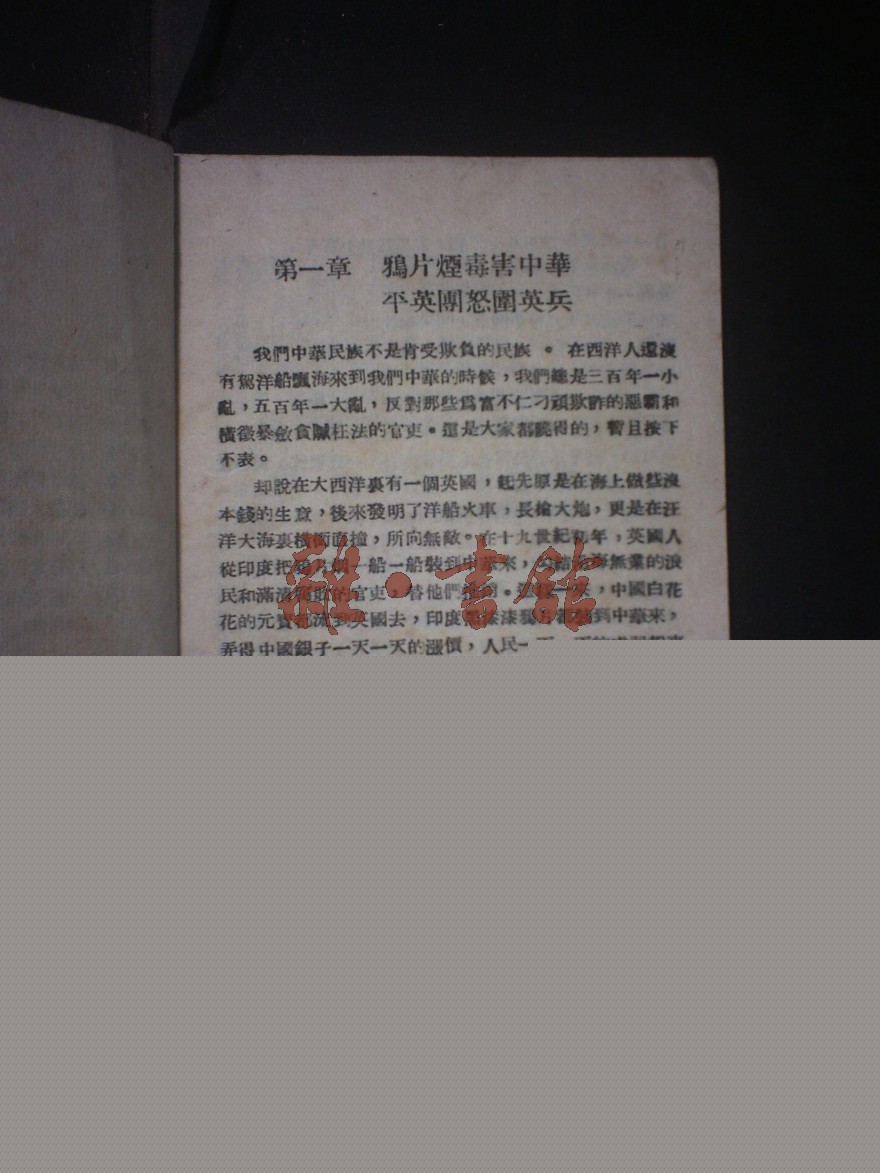 第一章 鴉片煙毒害中華
平英團怒圍英兵
我們中華民族不是肯受欺負的民族。在西洋人還沒
有駕洋船飄海來到我們中華的時候，我們總是三百年一小
亂，五百年一大亂，反對那些爲富不仁刁頑欺詐的惡霸和
橫徵暴斂貪贓枉法的官吏。這是大家都曉得的，暫且按下
不表。
却說在大西洋裏有一個英國，起先原是在海上做些沒
本錢的生意，後來發明了洋船火車，長槍大炮，更是在汪
洋大海裏橫衝直撞，所向無敵。在十九世紀初年，英國人
從印度把鴉片烟一船一船裝到中華來，結沿海無業的浪
民和滿清的官吏，替他們。這樣一來，中國白花
花的元寶都流到英國去，印度漆鴉片都到中華來，
弄得中國銀子一天一天的漲價，人民一
雜·書館